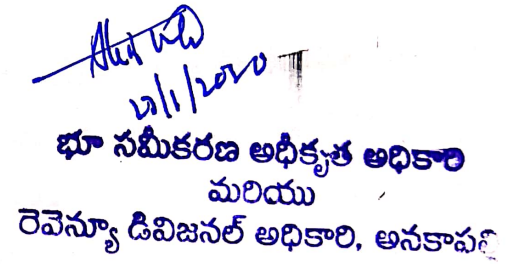 2১/1/2020
భూ సమీకరణ అధీకృత అధికారి
మరియు
రెవెన్యూ డివిజనల్ అధికారి, అనకాపల్లి